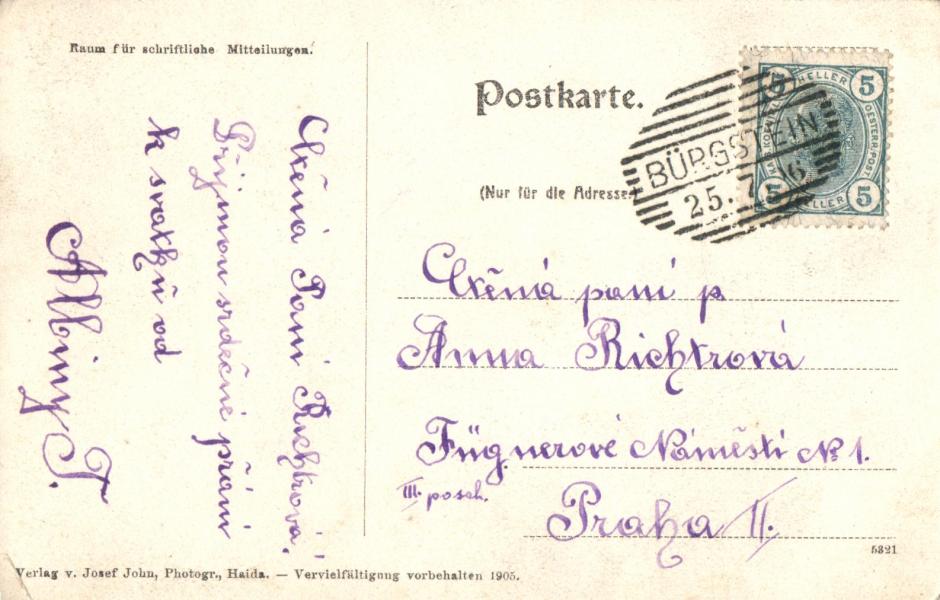 Raum für schriftliche Mitteilungen.
Ctěná Paní Richtrová!
Přijmou srdečné přání
k svatků od
Albiny T.
Postkarte.
(Nur für die Adresse)
BÜRGSTEIN
25. 7. 06
5 HELLER 5
OESTERR. POST
5 HELLER 5
Ctěná paní p.
Anna Richtrová
Fügnerové Náměstí No 1.
III. posch.
Praha II.
5321
Verlag v. Josef John, Photogr., Haida. — Vervielfältigung vorbehalten 1905.